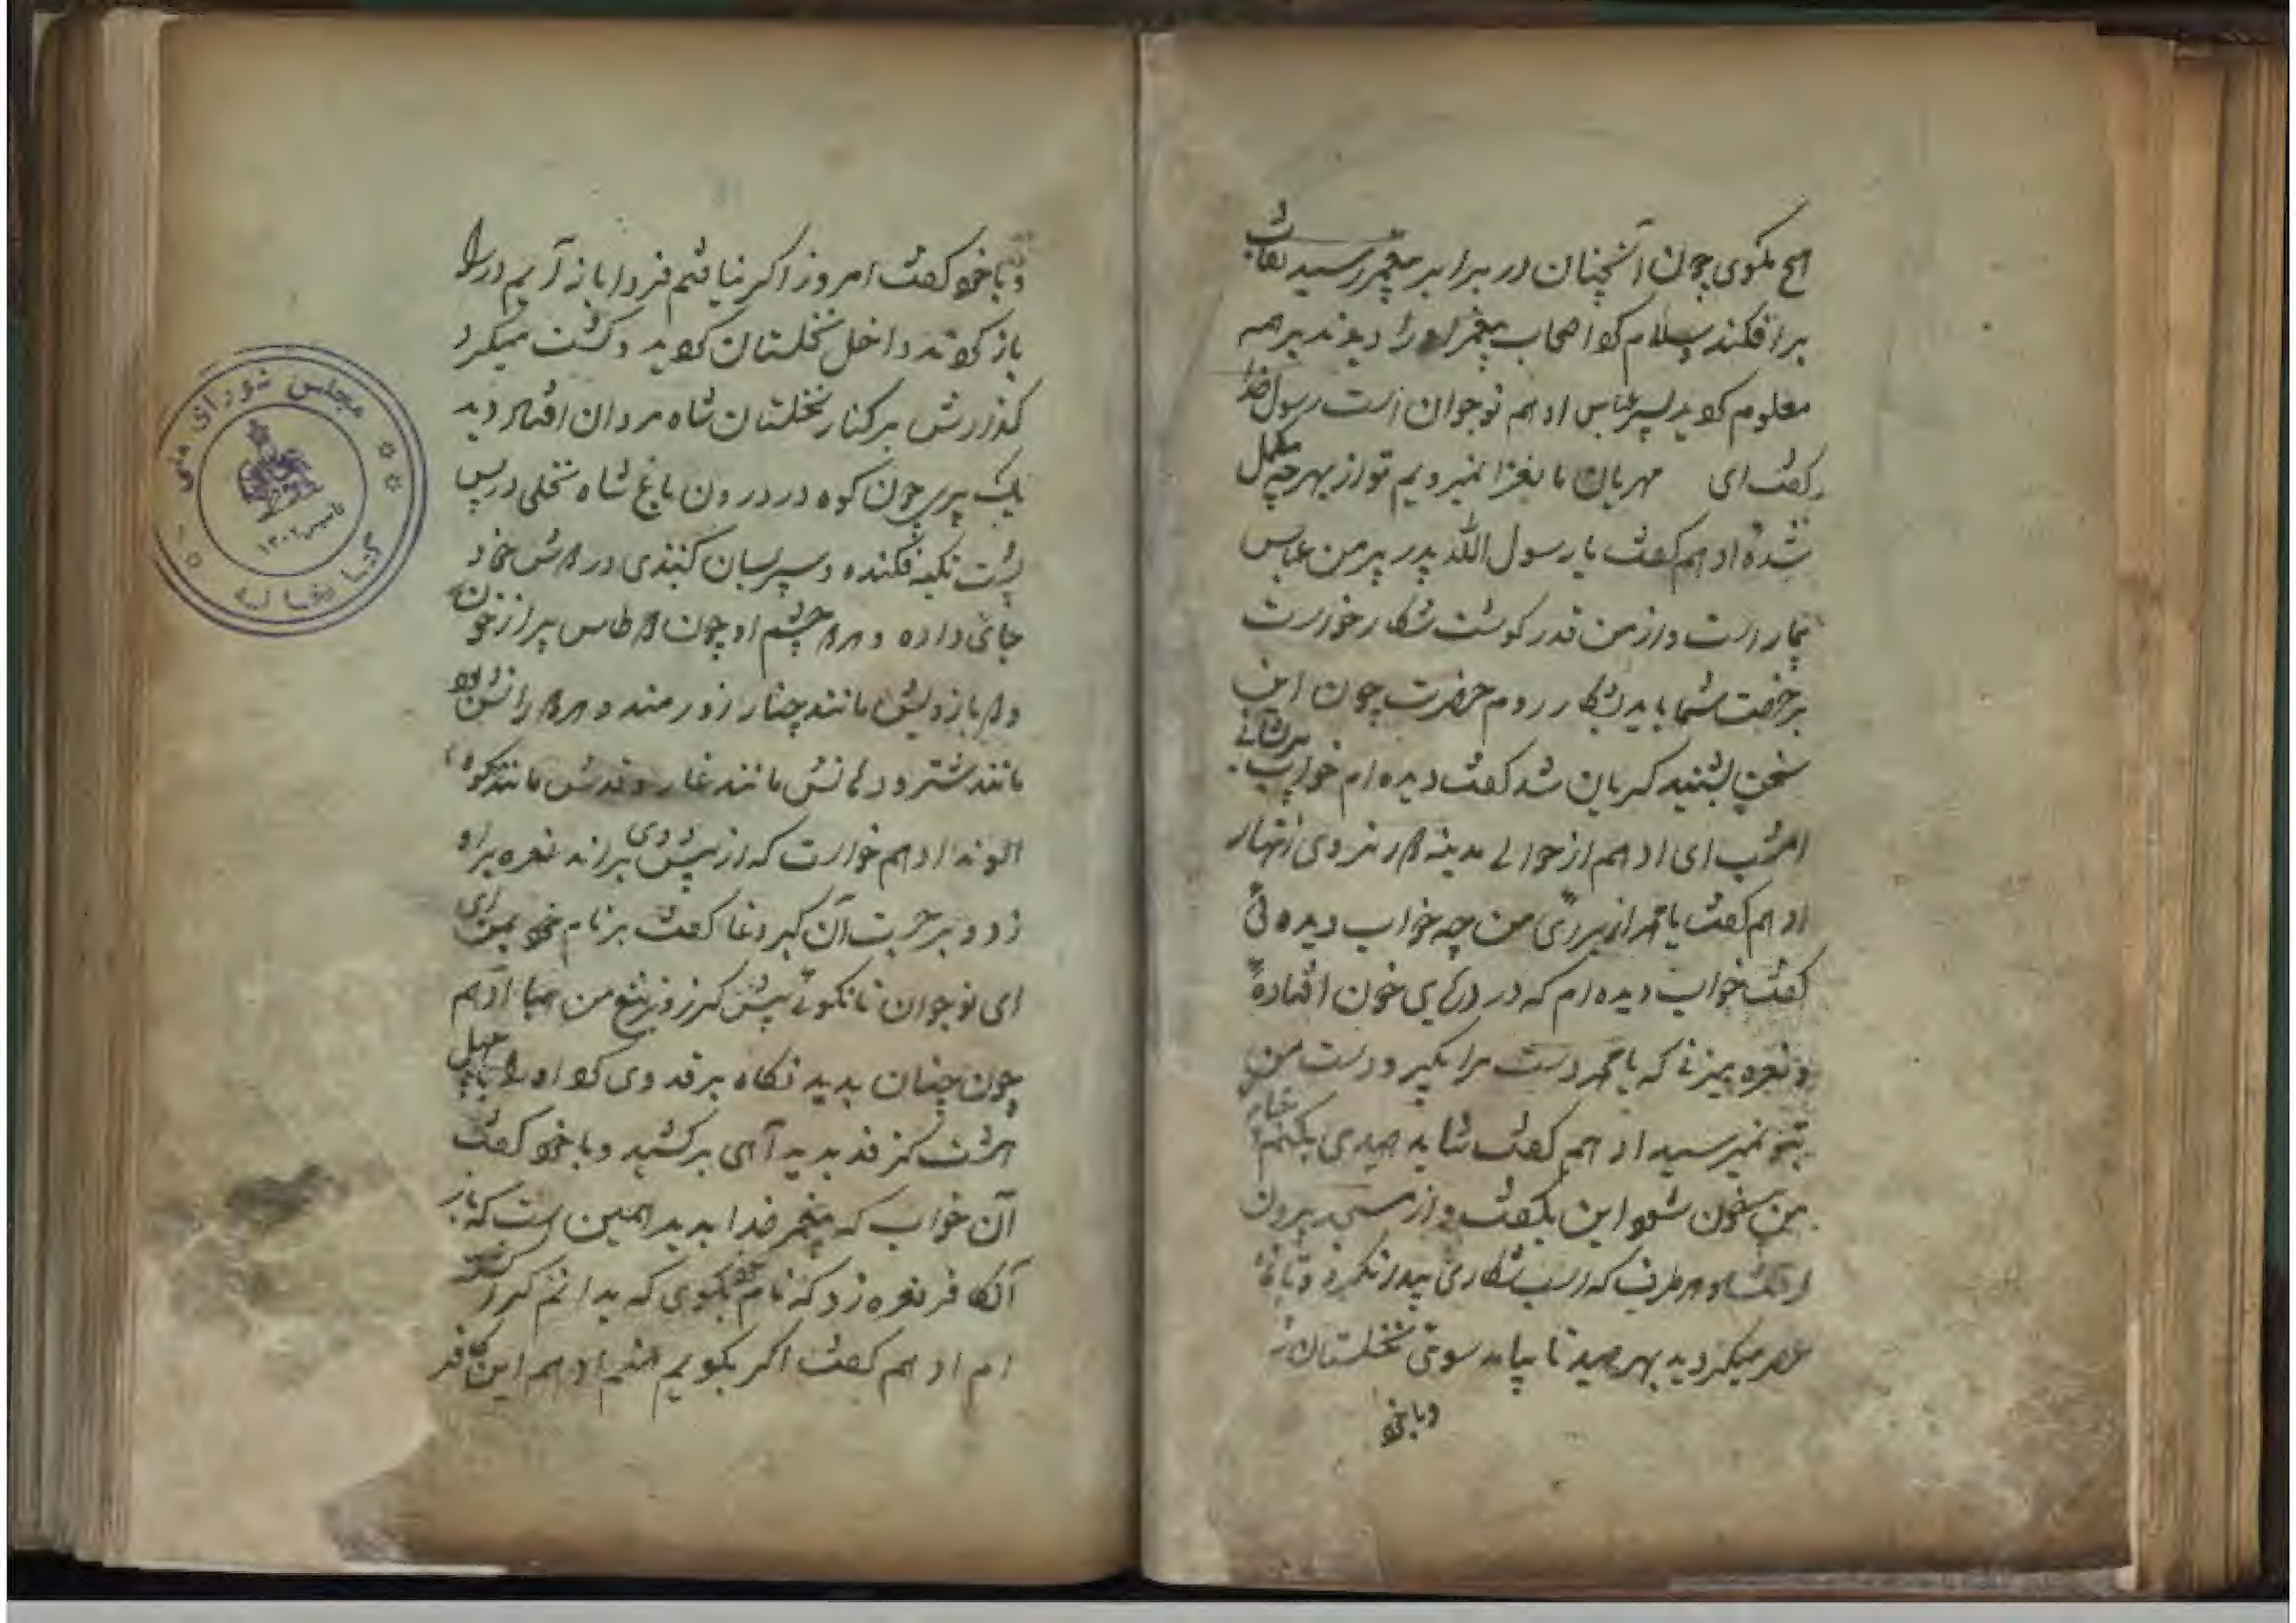 هیچ مگوی چون آنچنان در برابر پیغمبر رسید نقاب
برافکند سلام کرد اصحاب پیغمبر او را دیدند بر همه
معلوم کردید پسر عباس ادهم نوجوان است رسول خدا
گفت ای مهربان ما بغزا نمیرویم تو از بهر چه مکمل
شدهٔ ادهم گفت یا رسول الله پدر پیر من عباس
بیمار است و از من قدر گوشت شکار خواست
برخصت شما باید بشکار روم حضرت چون این
سخن بشنید گریان شد گفت دیده ام خواب پریشانی
امشب ای ادهم از حوالی مدینه نروی زنهار
ادهم گفت یا محمد از برای من چه خواب دیدهٔ
گفت خواب دیده ام که در دریای خون افتادهٔ
و نعره میزنی که یا محمد دست مرا بگیر و دست من
بتو نمیرسید ادهم گفت شاید صیدی بکنم
من بخون شود این بگفت و از مسجد بیرون
هر طرف که اسب شکاری پیدا نکرد و تا نماز
عصر میگردید بهر صید تا بیامد سوی نخلستان
و با خود
و با خود گفت امروز اگر نیافتم فردا باز آیم در را
باز کردند داخل نخلستان کردید و گشت میکرد
گذارش بر کنار نخلستان شاه مردان افتاد دید
یک پیری چون کوه در درون باغ شاه نخلی در پس
پشت تکیه فکنده و سپر بسان گنبدی در دوش خود
جای داده و هر دو چشم او چون دو طاس پر از خون
و دو بازویش مانند چنار زورمند و هر دو رانش
مانند شتر و دهانش مانند غار و قدش مانند کوه
الوند ادهم خواست که از پیش وی براند نعره بر او
زد و بر حربت آن گبر دغا گفت بر نام خود بمن ای
ای نوجوان تا نگوئی پیش گرز و تیغ من میا ادهم
چون چنان بدید نگاه بر قد وی کرد او را چهل
هشت گز قد بدید آهی برکشید و با خود گفت
آن خواب که پیغمبر خدا بدید همین است که باز
آن کافر نعره زد که نام خود بگوی که بدانم
ام ادهم گفت اگر بگویم منم ادهم این کافر
مجلس شورای ملی
کتابخانه
تاسیس ۱۳۰۲